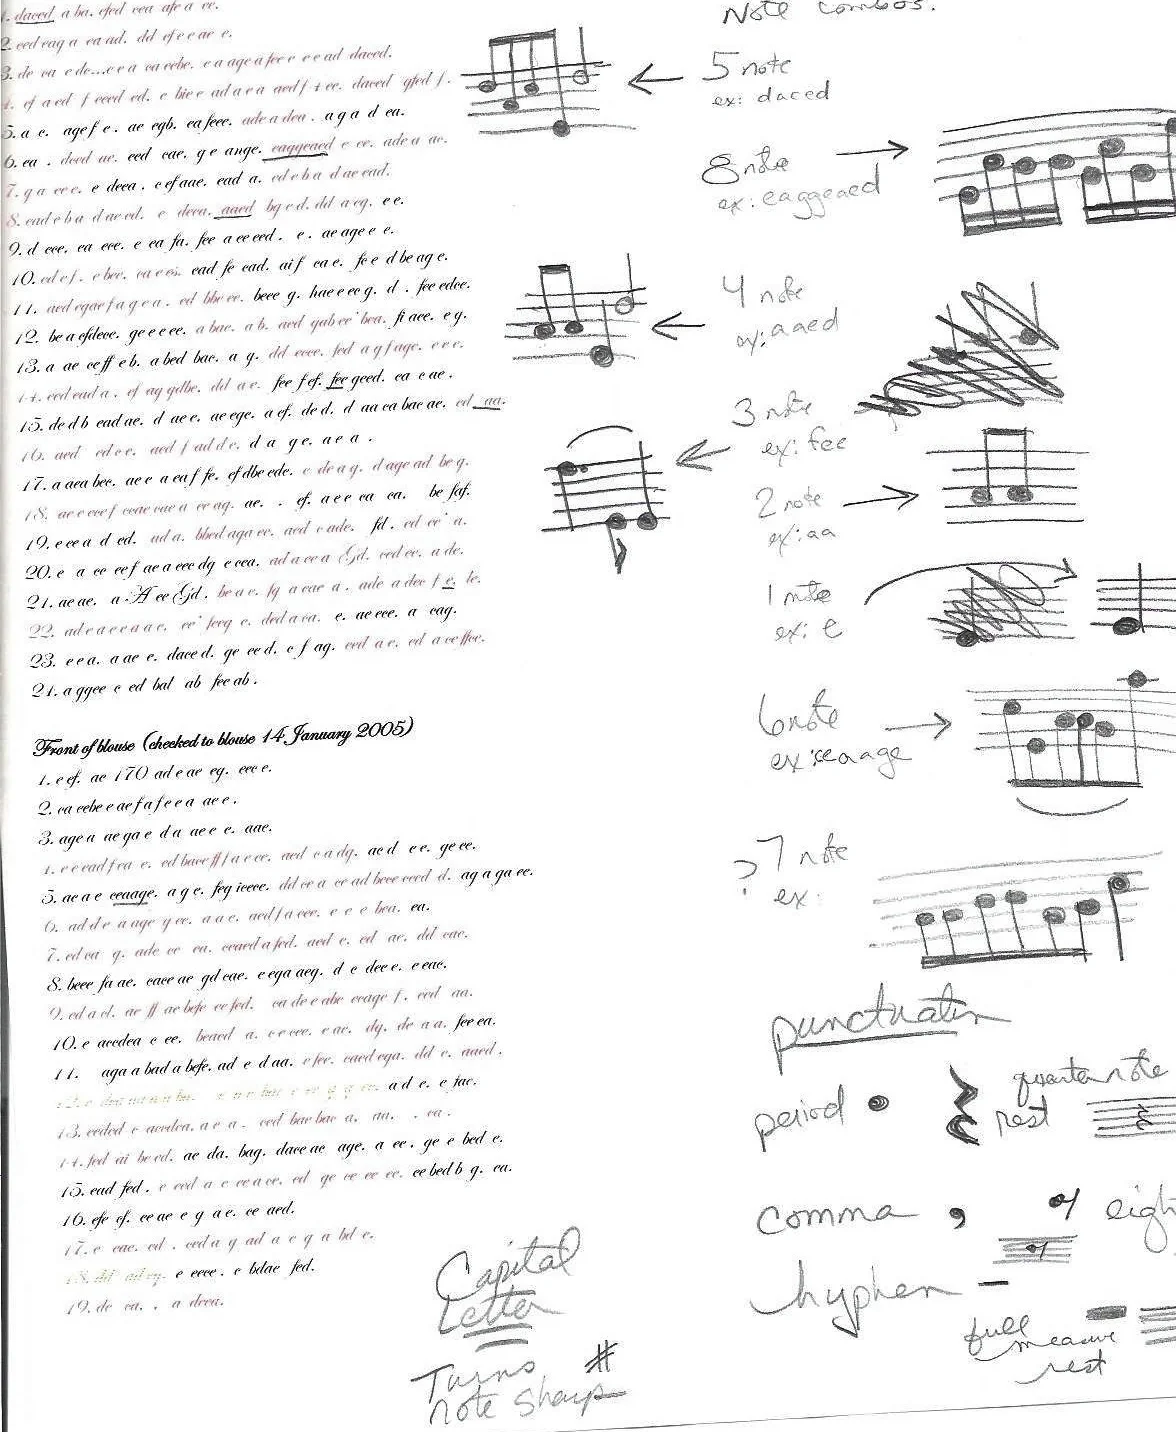 1. daced a ba. efed cea afe a ee.
2. eed eag a ea ad. dd efe e ae e.
3. de ea e de...e e a ea eebe. e a age a fee e e e ad daced.
4. ef a ed f eeed ed. e bie e ad a e a aed f 4 ee. daced gfed f.
5. a e. age f e. ae egb. ea feee. ade a dea. a g a d ea.
6. ea. deed ae. eed eae. g e ange. eaggeaed e ee. ade a ae.
7. g a ee e. e deea. e efaae. ead a. ed e b a d ae ead.
8. ead e b a d ae ed. e deea. aaed bg e d. dd a eg. e e.
9. d eee. ea eee. e ea fa. fee a ee eed. e. ae age e e.
10. ed e f. e bee. ea e es. ead fe ead. aif ea e. fe e d be ag e.
11. aed egae f a g e a. ed bbe ee. beee g. hae e e e g. d. fee edee.
12. be a efdeee. ge e e ee. a bae. a b. aed gab ee' bea. fi aee. e g.
13. a ae eeff e b. a bed bae. a g. dd eeee. fed a g f age. e e e.
14. eed ead a. ef ag gdbe. dd a e. fee f ef. fee geed. ea e ae.
15. de d b ead ae. d ae e. ae ege. a ef. de d. d aa ea bae ae. ed aa.
16. aed ed e e. aed f ad d e. d a ge. ae a.
17. a aea bee. ae e a ea f fe. efdbe ede. e de a g. d age ad be g.
18. ae e eeef eeae eae a ee ag. ae. . ef. a e e ea ea. be faf.
19. e ee a d ed. ad a. bbed aga ee. aed e ade. fd. ed ee' a.
20. e a ee eef ae a eee dg e eea. ad a ee a Gd. eed ee. a de.
21. ae ae. a-A ee Gd. be a e. fg a eae a. ade a dee f e. le.
22. ad e a e e a a e. ee' feeg e. ded a ea. e. ae eee. a eag.
23. e e a. a ae e. daee d. ge ee d. e f ag. eed a e. ed a ee ffee.
24. a ggee e ed bal ab fee ab.
Front of blouse (checked to blouse 14 January 2005)
1. e ef. ae 170 ad e ae eg. eee e.
2. ea eebe e ae f a f e e a ae e.
3. age a ae ga e d a ae e e. aae.
4. e e ead f ea e. ed baee ff f a e ee. aed e a dg. ae d e e. ge ee.
5. ae a e eeaage. a g e. feg ieeee. dd ee a ee ad beee eeed d. ag a ga ee.
6. ad d e a age g ee. a a e. aed f a eee. e e e bea. ea.
7. ed ea g. ade ee ea. eeaed a fed. aed e. ed ae. dd eae.
8. beee fa ae. eaee ae gd eae. e ega aeg. d e dee e. e eae.
9. ed a d. ae ff ae befe ee fed. ea de e abe eeage f. eed aa.
10. e aeedea e ee. beaed a. e e eee. e ae. dg. de a a. fee ea.
11. aga a bad a befe. ad e d aa. e fee. eaed ega. dd e. aaed.
a d e. e fae.
13. eeded e aeedea. a e a. eed bae bae a. aa. . ea.
14. fed ai be ed. ae da. bag. daee ae age. a ee. ge e bed e.
15. ead fed. e eed a e ee a ee. ed ge ee ee ee. ee bed b g. ea.
16. efe ef. ee ae e g a e. ee aed.
17. e eae. ed. eed a g ad a e g a bd e.
18. dd ad eg. e eeee. e bdae fed.
19. de ea. . a deea.
Note combos.
5 note
ex: daced
8 note
ex: eaggeaed
4 note
ex: aaed
3 note
ex: fee
2 note
ex: aa
1 note
ex: e
6 note
ex: eeaage
? 7 note
ex:
punctuation
period
quarter note
rest
comma ,
eigh
hyphen -
full
measure
rest
Capital
Letter
Turns #
note sharp